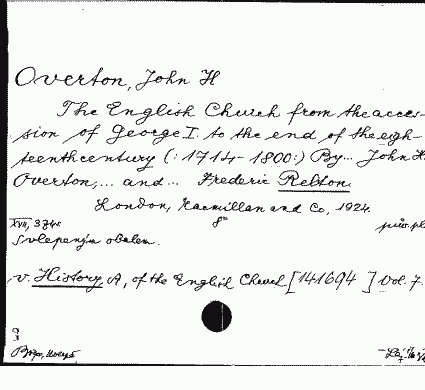 Overton, John H
The English Church from the acces-
sion of George I. to the end of the eigh-
teenth century (: 1714-1800:) By... John H.
Overton,... and... Frederic Relton.
London, Macmillan and Co, 1924.
XVII, 374s 8°
s vlepeným obalem.
v. History, A, of the English Church [141694 ] Vol. 7.